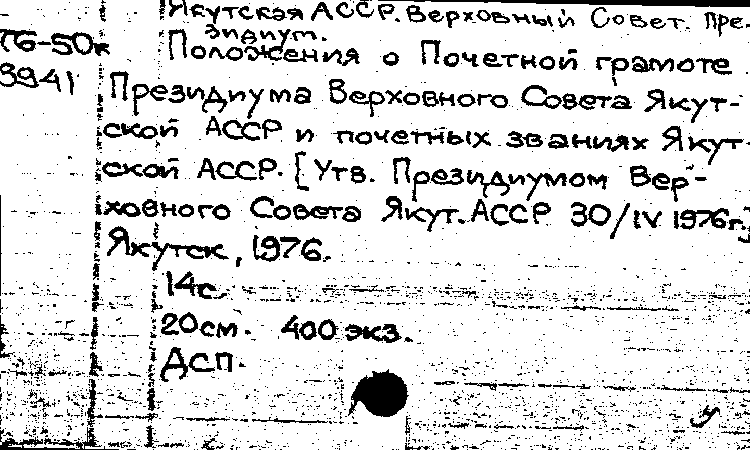 Якутская АССР. Верховный Совет. Пре-
зидиум.
76-50к Положения о Почетной грамоте
8941 Президиума Верховного Совета Якут-
ской АССР и почетных званиях Якут-
ской АССР. [Утв. Президиумом Вер-
ховного Совета Якут. АССР 30/IV 1976г.]
Якутск, 1976.
14с.
20см. 400 экз.
ДСП.
у